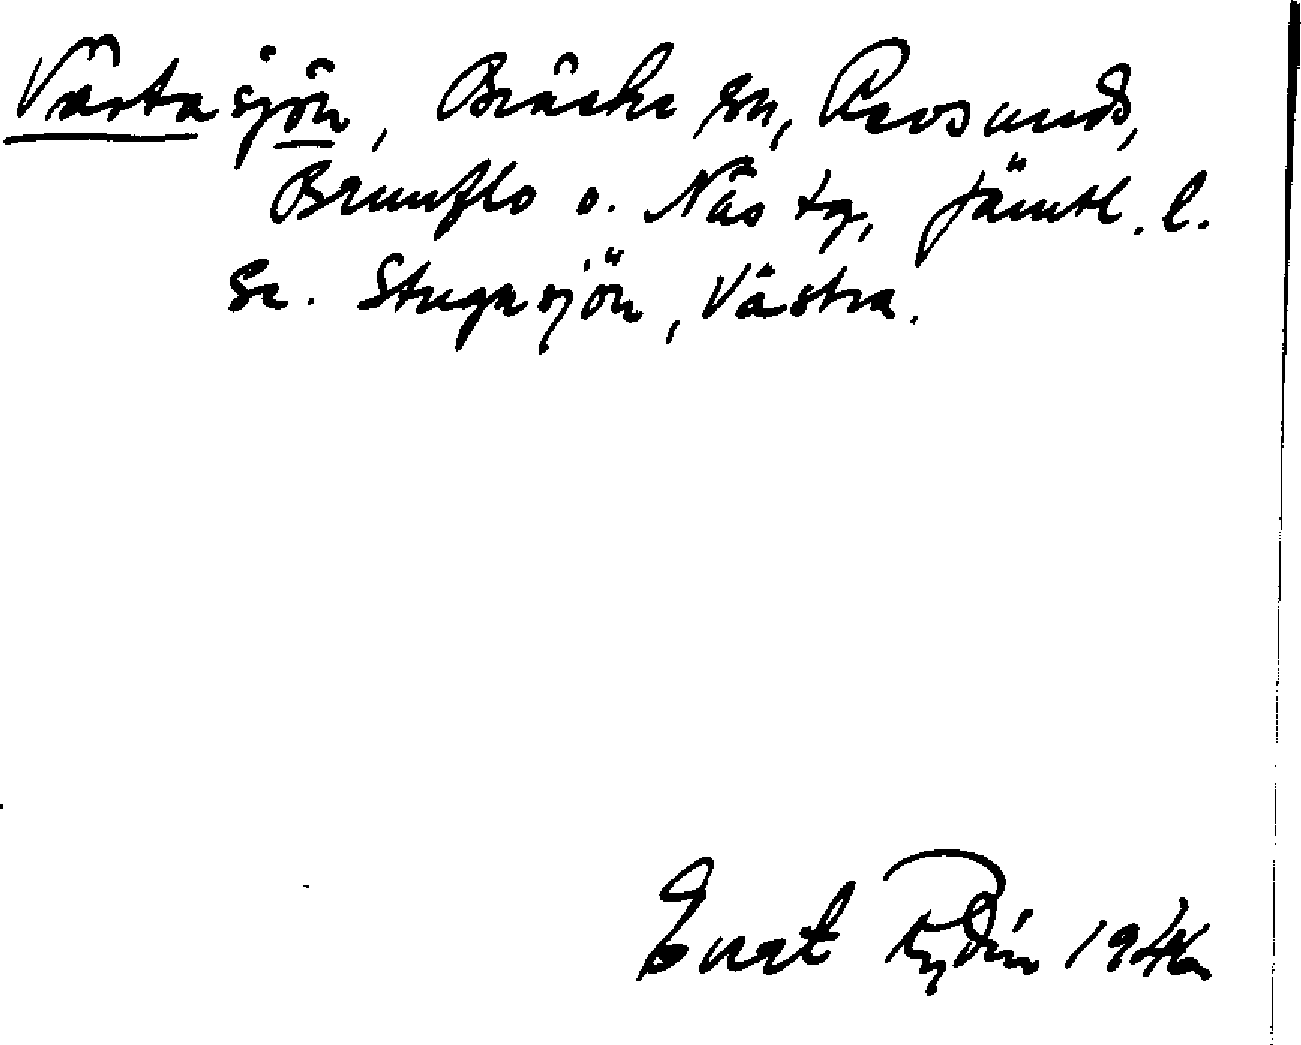 Värtasjön, Bräcke sn, Revsunds,
Brunflo o. Näs tg, Jämtl. l.
Se. Stugusjön, Västra.
Evert Rydin 1946